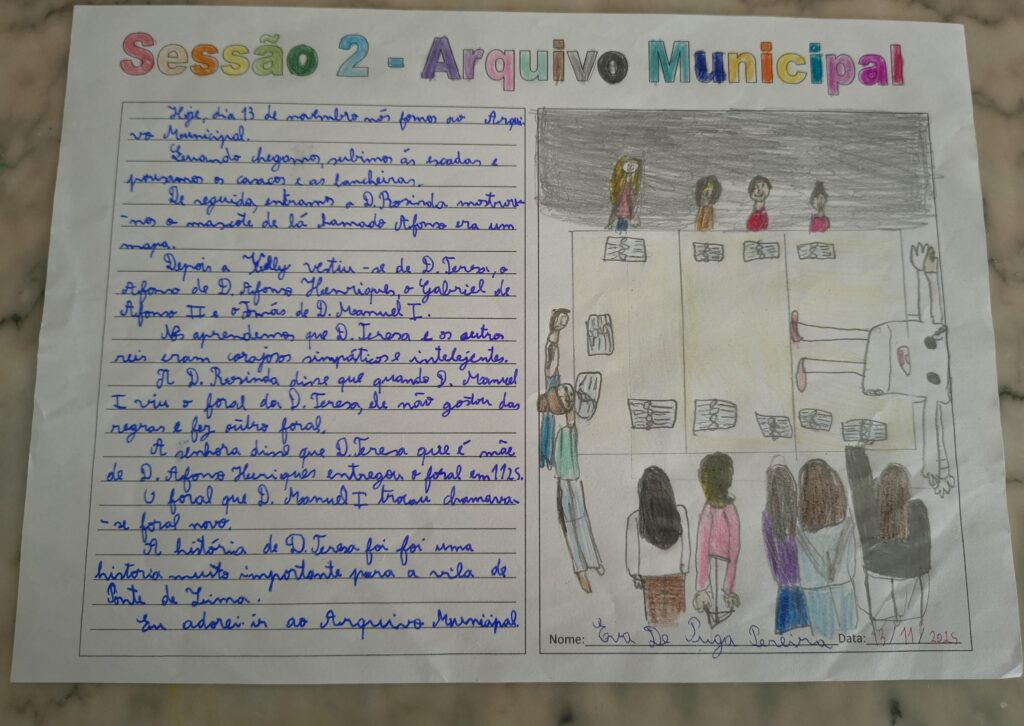 Sessão 2 - Arquivo Municipal
Hoje, dia 13 de novembro nós fomos ao Arqui
vo Municipal.
Quando chegamos, subimos ás escadas e
pousamos os casacos e as lancheiras.
De seguida, entramos a D. Rosinda mostrou
-nos o mascote de lá chamado Afonso era um
mapa.
Depois a Kelly vestiu-se de D. Teresa, o
Afonso de D. Afonso Henriques, o Gabriel de
Afonso II e o Tomás de D. Manuel I.
Nós aprendemos que D. Teresa e os outros
reis eram corajosos simpáticos e intelejentes.
A D. Rosinda disse que quando D. Manuel
I viu o foral da D. Teresa, ele não gostou das
regras e fez outro foral.
A senhora disse que D. Teresa que é mãe
de D. Afonso Heriques entregou o foral em 1125.
O foral que D. Manuel I trocou chamava
-se foral novo.
A história de D. Teresa foi foi uma
historia muito importante para a vila de
Ponte de Lima.
Eu adorei ir ao Arquivo Municipal.
Nome: Eva De Puga Pereira Data: 13/11/2025